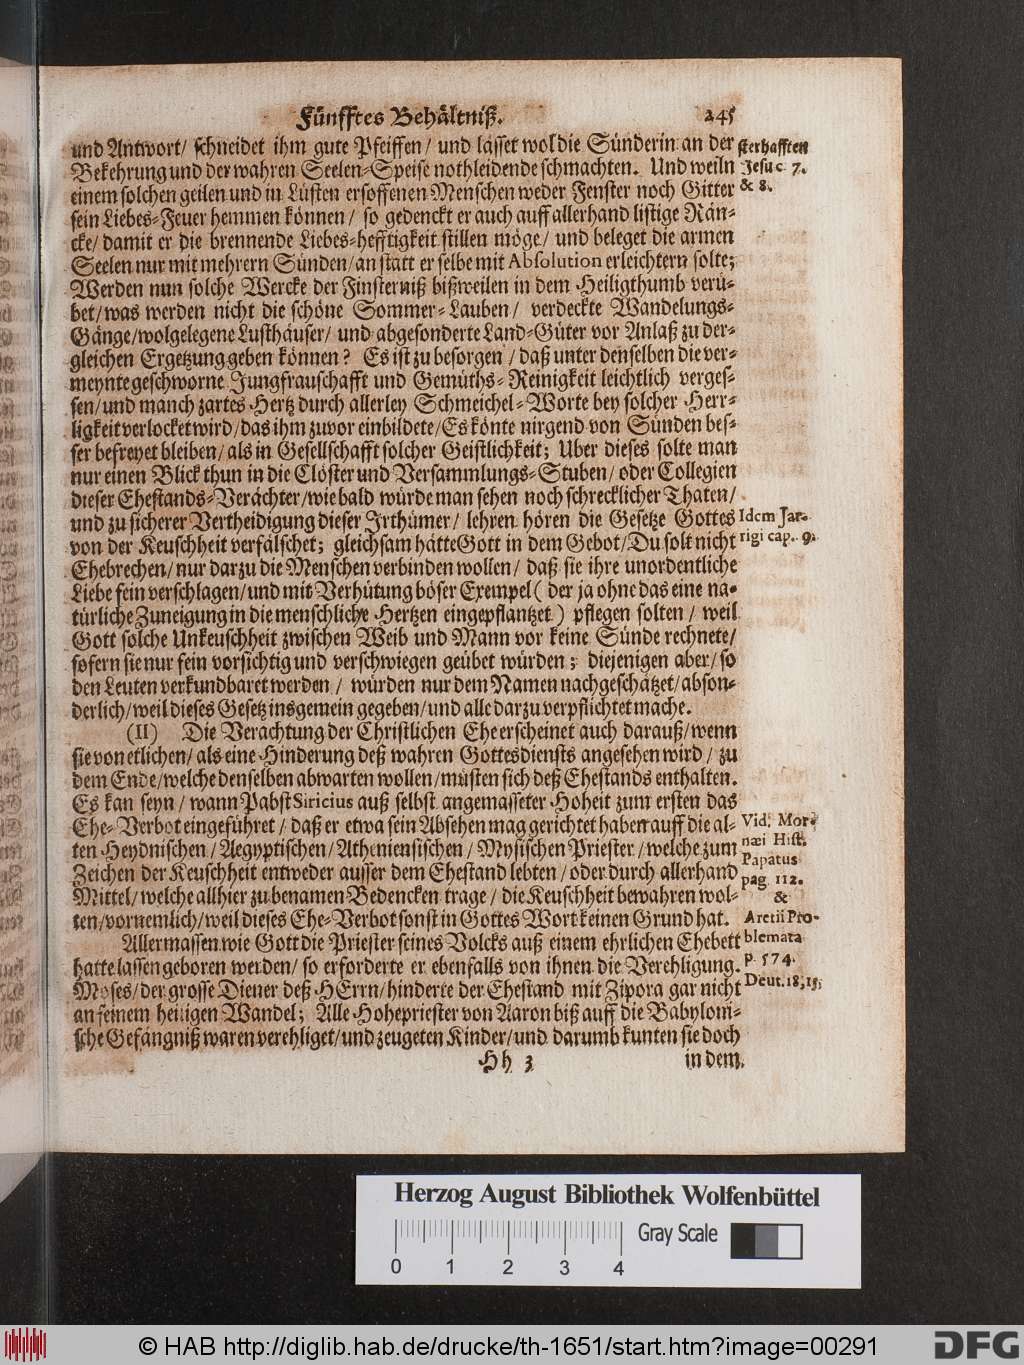 Fünfftes Behältniß. 245
und Antwort/ schneidet ihm gute Pfeiffen/ und lässet wol die Sünderin an der
Bekehrung und der wahren Seelen-Speise nothleidende schmachten. Und weiln
einem solchen geilen und in Lüsten ersoffenen Menschen weder Fenster noch Gitter
sein Liebes-Feuer hemmen können/ so gedenckt er auch auff allerhand listige Rän-
cke/ damit er die brennende Liebes-hefftigkeit stillen möge/ und beleget die armen
Seelen nur mit mehrern Sünden/ an statt er selbe mit Absolution erleichtern solte;
Werden nun solche Wercke der Finsterniß bißweilen in dem Heiligthumb verü-
bet/ was werden nicht die schöne Sommer-Lauben/ verdeckte Wandelungs-
Gänge/ wolgelegene Lusthäuser/ und abgesonderte Land-Güter vor Anlaß zu der-
gleichen Ergetzung geben können? Es ist zu besorgen/ daß unter denselben die ver-
meynte geschworne Jungfrauschafft und Gemüths-Reinigkeit leichtlich verges-
sen/ und manch zartes Hertz durch allerley Schmeichel-Worte bey solcher Herr-
ligkeit verlocket wird/ das ihm zuvor einbildete/ Es könte nirgend von Sünden bes-
ser befreyet bleiben/ als in Gesellschafft solcher Geistlichkeit; Uber dieses solte man
nur einen Blick thun in die Clöster und Versammlungs-Stuben/ oder Collegien
dieser Ehestands-Verächter/ wie bald würde man sehen noch schrecklicher Thaten/
und zu sicherer Vertheidigung dieser Irthümer/ lehren hören die Gesetze Gottes
von der Keuschheit verfälschet; gleichsam hätte Gott in dem Gebot/ Du solt nicht
Ehebrechen/ nur darzu die Menschen verbinden wollen/ daß sie ihre unordentliche
Liebe fein verschlagen/ und mit Verhütung böser Exempel (der ja ohne das eine na-
türliche Zuneigung in die menschliche Hertzen eingepflantzet) pflegen solten/ weil
Gott solche Unkeuschheit zwischen Weib und Mann vor keine Sünde rechnete/
sofern sie nur fein vorsichtig und verschwiegen geübet würden; diejenigen aber/ so
den Leuten verkundbaret werden/ würden nur dem Namen nach geschätzet/ abson-
derlich/ weil dieses Gesetz insgemein gegeben/ und alle darzu verpflichtet mache.
(II) Die Verachtung der Christlichen Ehe erscheinet auch darauß/ wenn
sie von etlichen/ als eine Hinderung deß wahren Gottesdiensts angesehen wird/ zu
dem Ende/ welche denselben abwarten wollen/ müsten sich deß Ehestands enthalten.
Es kan seyn/ wann Pabst Siricius auß selbst angemasseter Hoheit zum ersten das
Ehe-Verbot eingeführet/ daß er etwa sein Absehen mag gerichtet haben auff die al-
ten Heydnischen/ Aegyptischen/ Atheniensischen/ Mysischen Priester/ welche zum
Zeichen der Keuschheit entweder ausser dem Ehestand lebten/ oder durch allerhand
Mittel/ welche allhier zu benamen Bedencken trage/ die Keuschheit bewahren wol-
ten/ vornemlich/ weil dieses Ehe-Verbot sonst in Gottes Wort keinen Grund hat.
Allermassen wie Gott die Priester seines Volcks auß einem ehrlichen Ehebett
hatte lassen geboren werden/ so erforderte er ebenfalls von ihnen die Verehligung.
Moses/ der grosse Diener deß HErrn/ hinderte der Ehestand mit Zipora gar nicht
an seinem heiligen Wandel; Alle Hohepriester von Aaron biß auff die Babyloni-
sche Gefängniß waren verehliget/ und zeugeten Kinder/ und darumb kunten sie doch
Hh 3 in dem
sterhafften
Jesu c. 7.
& 8.
Idem Jar-
rigi cap. 9.
Vid. Mor-
næi Hist.
Papatus
pag. 112.
&
Aretii Pro-
blemata
p. 574.
Deut. 18, 15.
Herzog August Bibliothek Wolfenbüttel
Gray Scale
0 1 2 3 4
© HAB http://diglib.hab.de/drucke/th-1651/start.htm?image=00291
DFG